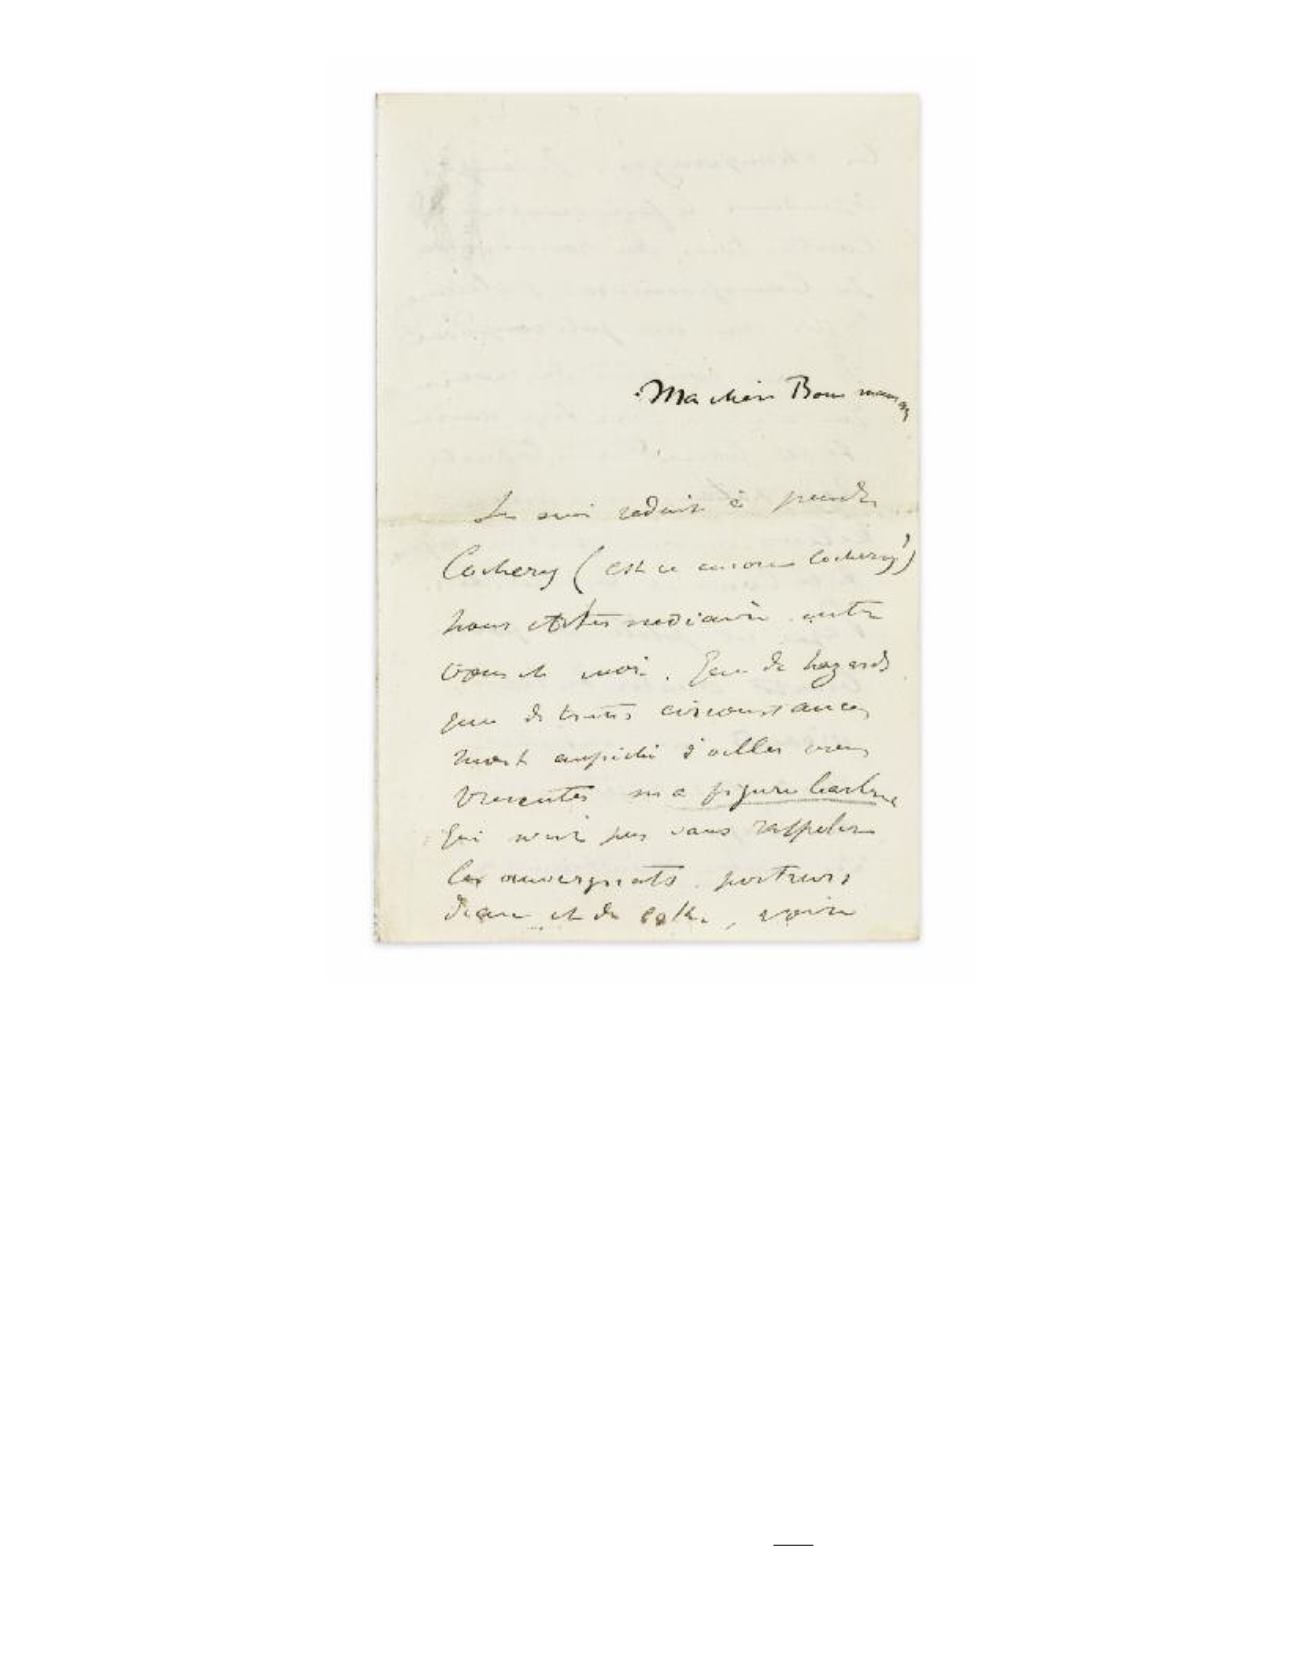 Ma chère Bonne maman
Je suis réduit à prendre
Cochery (est ce encore Cochery?)
pour intermédiaire entre
vous et moi. Que de hazards
que de tristes circonstances
m'ont empêché d'aller vous
présenter ma figure
qui n'est pas sans rappeler
les auvergnats porteurs
d'eau et de coke, voire